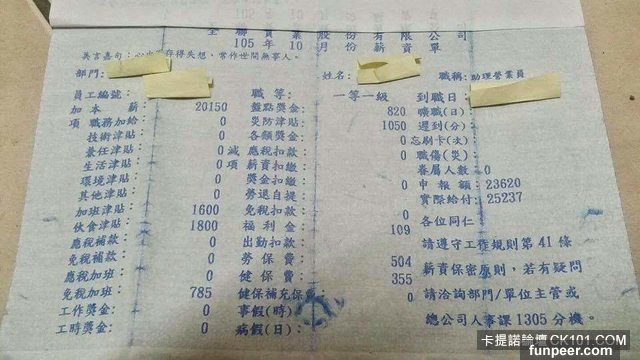 全聯實業股份有限公司
105年10月份薪資單
美言嘉句：心田不存得失想，常作世間無事人。
部門： 姓名： 職稱：助理營業員
員工編號： 職等： 一等一級 到職日：
加 本薪： 20150 盤點獎金： 820 曠職(日)：
項 職務加給： 0 災防津貼： 1050 遲到(分)：
技術津貼： 0 各類獎金： 0 忘刷卡(次)：
兼任津貼： 0 減 應稅扣款： 0 職傷(災)：
生活津貼： 0 項 薪資扣繳： 0 眷屬人數： 0
環境津貼： 0 獎金扣繳： 0 申報額：23620
其他津貼： 0 勞退自提： 0 實際給付：25237
加班津貼： 1600 免稅扣款： 0 各位同仁：
伙食津貼： 1800 福利金： 109
應稅補款： 0 出勤扣款： 請遵守工作規則第41條
免稅補款： 0 勞保費： 504 薪資保密原則，若有疑問
應稅加班： 0 健保費： 355
免稅加班： 785 健保補充保費： 請洽詢部門/單位主管或
工作獎金： 0 事假(時)： 0
工時獎金： 0 病假(日)： 0 總公司人事課1305分機。
卡提諾論壇CK101.COM
funpeer.com